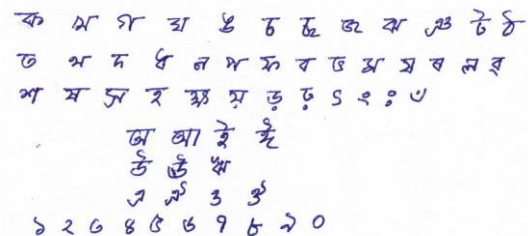 ক খ গ ঘ ঙ চ ছ জ ঝ ঞ ট ঠ
ত থ দ ধ ন প ফ ব ভ ম য ৰ ল ৱ
শ ষ স হ ক্ষ য় ড় ঢ় ৎ ং ঃ ঁ
অ আ ই ঈ
উ ঊ ঋ
এ ঐ ও ঔ
১ ২ ৩ ৪ ৫ ৬ ৭ ৮ ৯ ০